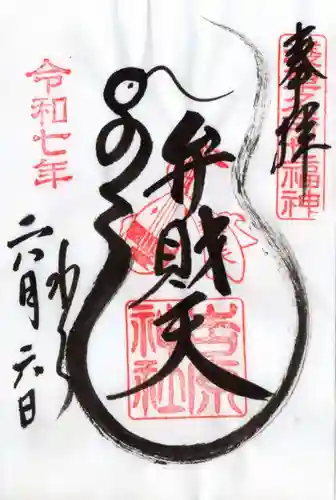 奉拝
福神
弁財天
吉原
神社
令和七年
六月六日